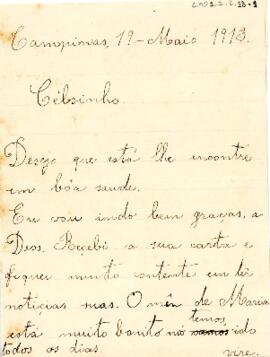 Campinas, 19-Maio 1913.
Célsinho.
Desejo que está lhe encontre
em bôa saude.
Eu vou indo bem graças, a
Deos. Recebi a sua carta e
fiquei muito contente em ter
noticias suas. O mês de Maria
temos
está muito bonito nós vamos ido
todos os dias.